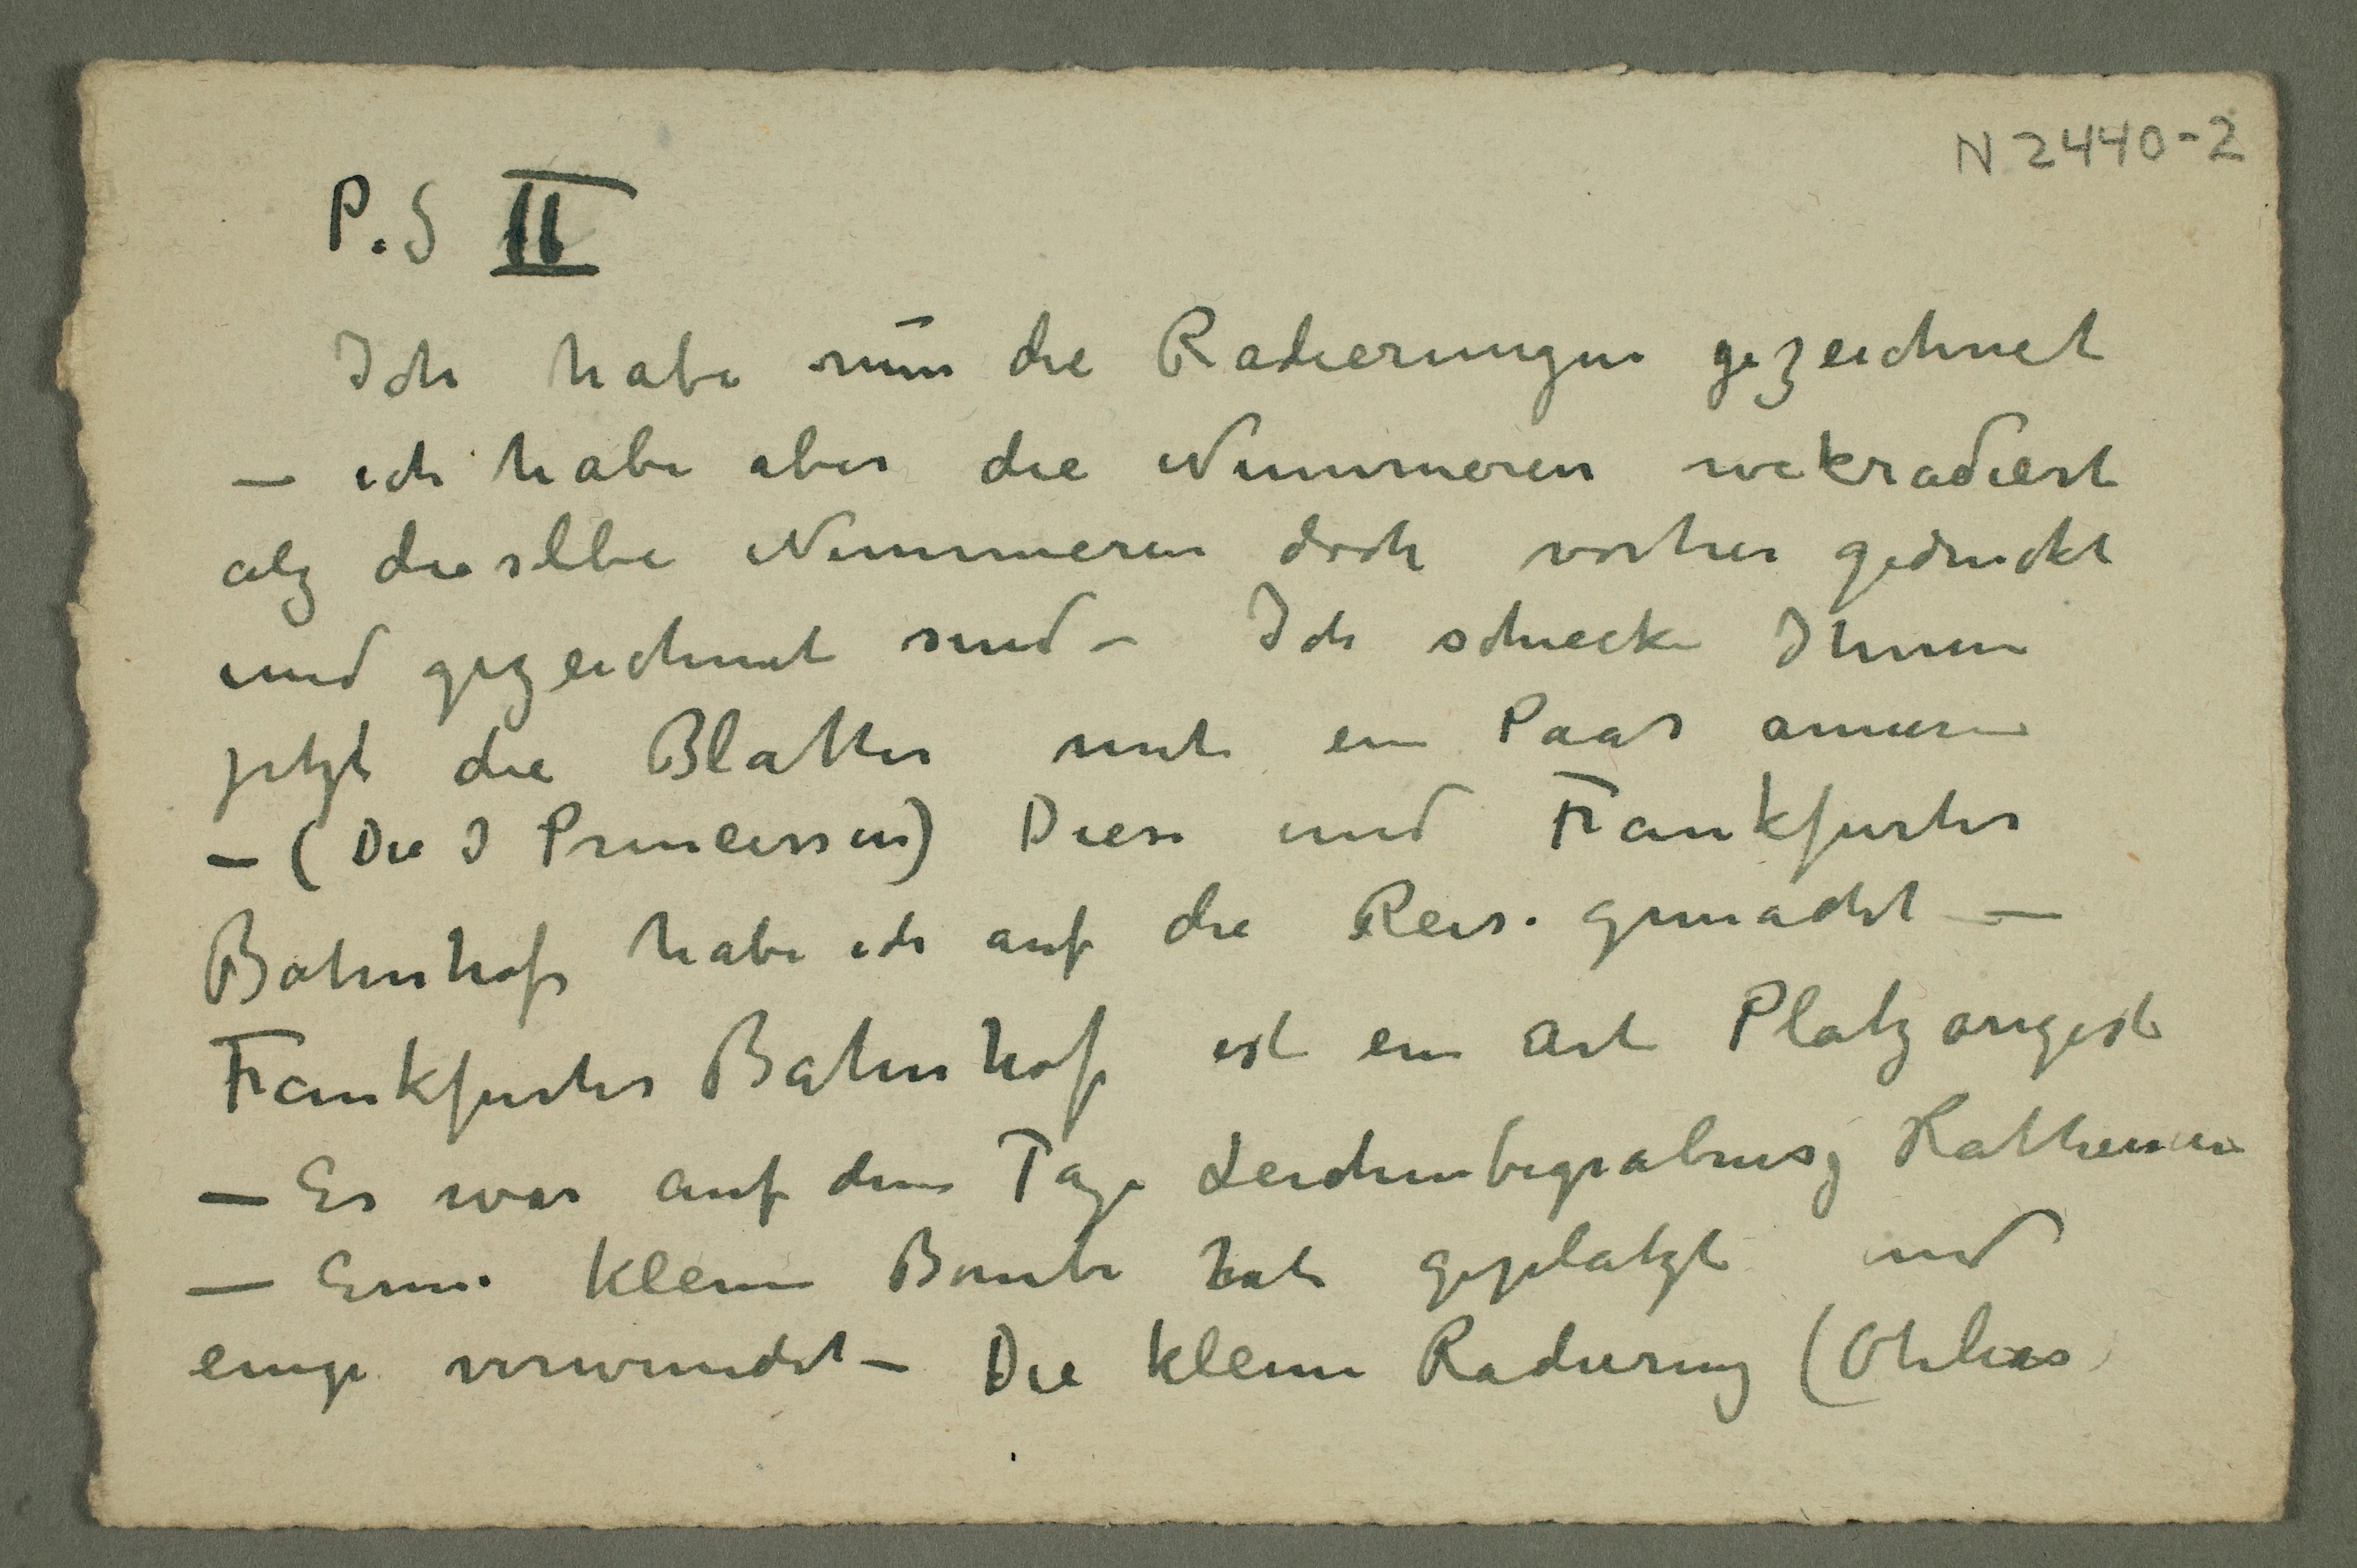 N 2440-2
P.S II
Ich habe nun die Radierungen gezeichnet
– ich habe aber die Nummeren wekradiert
alz dieselbe Nummeren doch vorher gedruckt
und gezeichnet sind – Ich schicke Ihnen
jetzt die Blatter mit ein Paar
– (Die 3 Princessen) Diese und Frankfurter
Bahnhof habe ich auf die Reise gemacht –
Frankfurter Bahnhof ist ein Art Platzangest
– Es war auf dem Tage Leichenbegrabnisz Rathenau
– Eine kleine Bombe hat geplatzt und
einige verwundet – Die kleine Radierung (